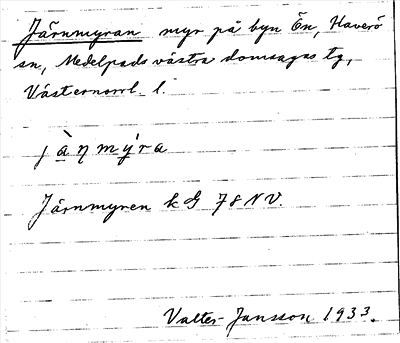 Järnmyran myr på byn Ön, Haverö
sn, Medelpads västra domsagas tg,
Västernorrl. l.
Järnmyren kG 78 NV.
Valter Jansson 1933.